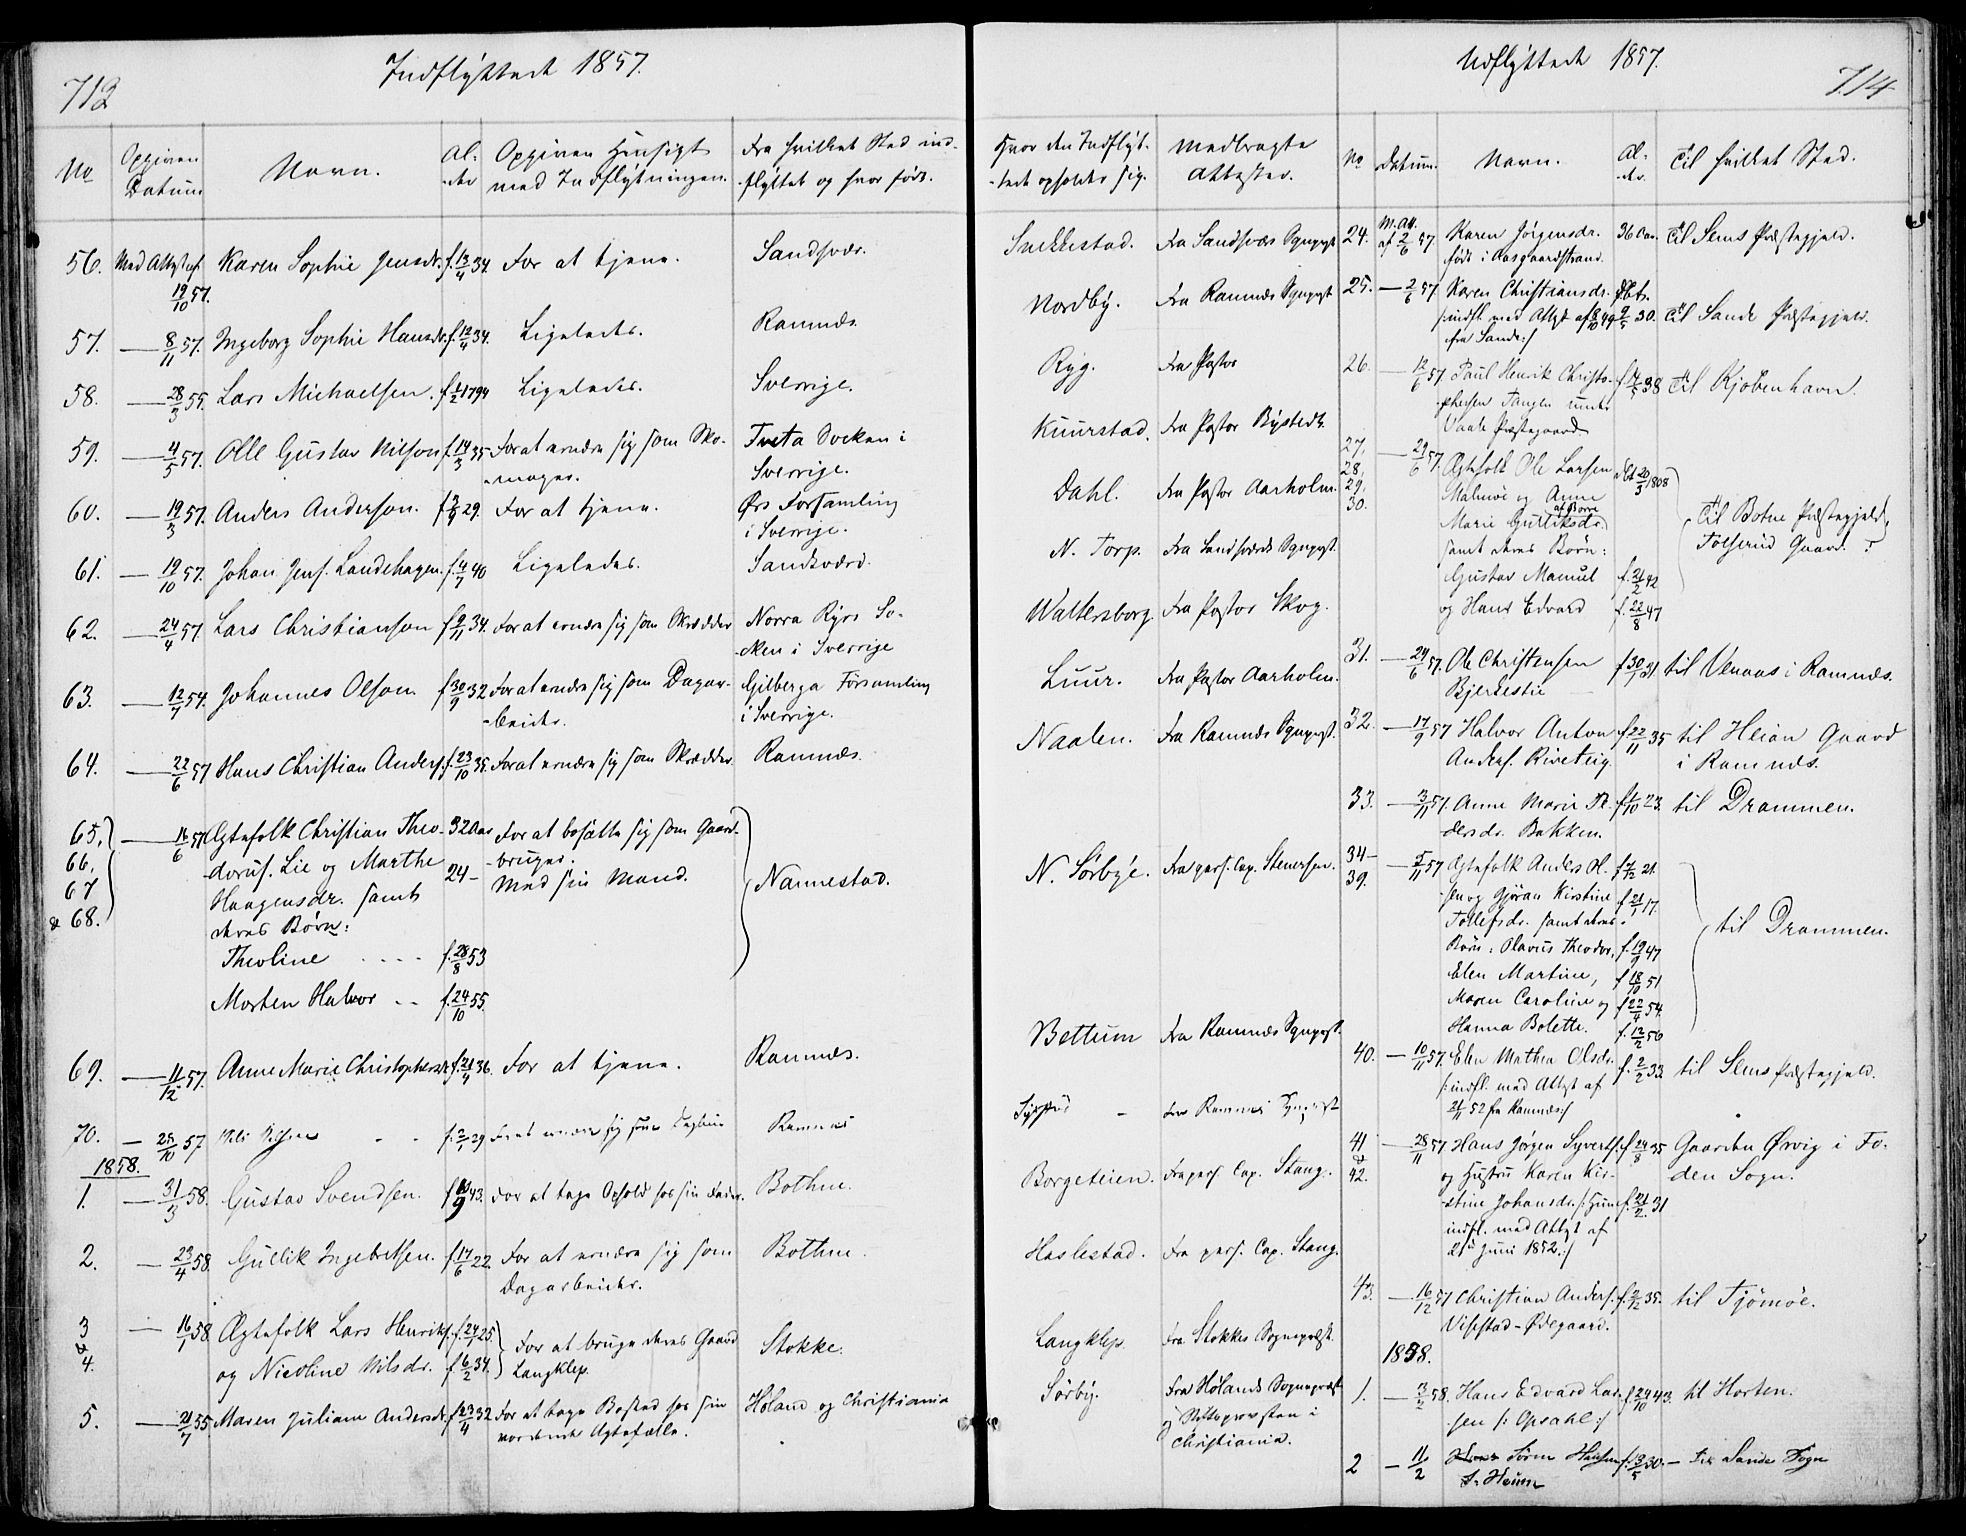 712
Indflyttede 1857.
No
Opgiven Datum
Navn.
Al-der
Opgiven Hensigt med Indflytningen.
Fra hvilket Sted ind-flyttet og hvor født.
Hvor den Indflyt-tede opholder sig.
Medbragte Attester.
56. Med Attest af 19/10 57. Karen Sophie Jensdr. f. 13/4 34. For at tjene. Sandsvær. Snekkestad. Fra Sandsværs Sgnprst.
57. — 8/11 57. Ingeborg Sophie Hansdr. f. 12/4 34. Ligeledes. Ramnæs. Nordby. Fra Ramnæs Sgnprst.
58. — 28/3 55. Lars Michaelsen. f. 1/2 1794 Ligeledes. Sverrige. Ryg. Fra Pastor
59. — 4/5 57. Olle Gustav Nilson f. 14/3 35 For at ernære sig som Sko-mager. Tveta Socken i Sverrige. Kuurstad. Fra Pastor Bystedt.
60. — 19/3 57. Anders Anderson. f. 3/9 29. For at tjene. Ørs Forsamling i Sverrige. Dahl. Fra Pastor Aarholm.
61. — 19/10 57. Johan Jens. Landehagen. f. 4/7 40 Ligeledes. Sandsværd. N. Torp. Fra Sandsværds Sgnprst.
62. — 24/4 57. Lars Christianson f. 9/11 34. For at ernære sig som Skrædder Norra Ryrs So-cken i Sverrige Waltersborg. Fra Pastor Skog.
63. — 12/7 54. Johannes Olson. f. 30/9 32 For at ernære sig som Dagar-beider. Gilberga Församling i Sverrige. Luur. Fra Pastor Aarholm.
64. — 22/6 57 Hans Christian Anders. f. 23/10 35. For at ernære sig som Skrædder. Ramnæs. Naalen. Fra Ramnæs Sgnprst.
65, 66, 67 & 68. — 16/6 57 Egtefolk Christian Theo-dorus. Lie og Marthe Haagensdr. samt deres Børn: 32 Aar 24 — For at bosætte sig som Gaard-bruger. Med sin Mand. Nannestad. N. Sørbye. Fra pers. Cap. Stenersen.
Theoline .... f. 28/8 53
Morten Halvor .. f. 24/10 55.
69. — 11/12 57. Anne Marie Christophersdr. f. 21/4 36. For at tjene. Ramnæs. Bettum Fra Ramnæs Sgnprst.
70. — 25/10 57 Nils Nilsen f. 2/7 29 For at ernære sig som Ramnæs Fra Ramnæs Sgnprst
1858.
1. — 31/3 58. Gustav Svendsen. f. 10/9 43. For at tage Ophold hos sin Fader. Bothne. Borgeteien. Fra pers. Cap. Stang.
2. — 23/4 58. Gullik Ingebretsen. f. 17/6 22. For at ernære sig som Dagarbeider. Bothne. Haslestad. Fra pers. Cap. Stang.
3 & 4. — 16/1 58. Ægtefolk Lars Henriks. f. 24/1 25. og Nicoline Nilsdr. f. 6/2 34. For at bruge deres Gaard Langklep. Stokke. Langklep. Fra Stokkes Sognepræst.
5. — 21/7 55 Maren Juliane Andersdr. f. 23/4 32 For at tage Bosted hos sin vordende Ægtefælle. Høland og Christiania Sørby. Fra Hølands Sognepræst og Stiftsprovsten i Christiania.
Udflyttede 1857.
714
No
Datum.
Navn.
Al-der.
Til hvilket Sted.
24. M. Att. af 2/6 57. Karen Jørgensdr. født i Aasgaardstrand. 36 Aar. Til Sems Præstegjeld.
25. — 2/6 57. Karen Christiansdr. /:indfl. med Attest af 8/10 49 fra Sande:/ døbt. 9/5 30. Til Sande Præstegjeld.
26. — 12/6 57. Paul Henrik Christo-phersen Tangen under Vaale Præstegaard f. 4/5 38 Til Kjøbenhavn.
27, 28, 29, 30. — 29/6 57. Ægtefolk Ole Larsen Malmøe og Anne Marie Gulliksdr. af Borre samt deres Børn: døbt 20/3 1808 Til Botne Præstegjeld, Tolfsrud Gaard.
Gustav Manuel f. 21/2 42
og Hans Edvard f. 22/8 47
31. — 29/6 57. Ole Christensen Bjerkestie f. 30/7 31. til Venaas i Ramnæs.
32. — 17/9 57 Halvor Anton Anders. Rivetiig. f. 22/11 35 til Heian Gaard i Ramnæs.
33. — 3/11 57. Anne Marie Pe-dersdr. Bakken. f. 1/10 23. til Drammen.
34-39. — 5/11 57 Ægtefolk Anders Ol-sen og Gjøran Kirstine Tollefsdr. samt deres Børn: Olavus Theodor, Elen Martine, Maren Caroline og Hanna Bolette. f. 7/12 21. f. 21/1 17. f. 19/9 47 f. 18/10 51 f. 22/4 54. f. 12/2 56 til Drammen.
40. — 10/11 57. Elen Mathea Olsdr. /:indfl. med Attest af 21/11 52 fra Ramnæs:/ f. 2/2 33. til Sems Præstegjeld.
41 & 42. — 28/11 57. Hans Jørgen Syverts. og Hustru Karen Kir-stine Johansdr. /:Hun indfl. med Attest af 21de Juni 1852:/ f. 24/8 35 f. 21/2 31 Gaarden Ørvig i Fo-den Sogn.
43. — 16/12 57 Christian Anders. Vifstad-Ødegaard. f. 2/12 35. til Tjømøe.
1858.
1. — 3/2 58. Hans Edvard Lar-sen /: Opsahl:/ f. 29/10 43. til Horten.
2 — 11/2 Sørine Hansen f. 13/5 30. — Til Sande Sogn